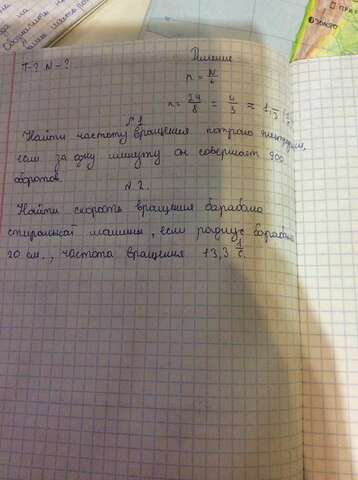 T-? N-?
Решение
n = N/t
n = 24/8 = 4/3 ≈ 1,
N 1
Найти частоту вращения
если за одну минуту он совершает 900
оборотов.
N 2.
Найти скорость вращения барабана
стиральной машины, если радиус барабана
20 см., частота вращения 13,3 1/с.